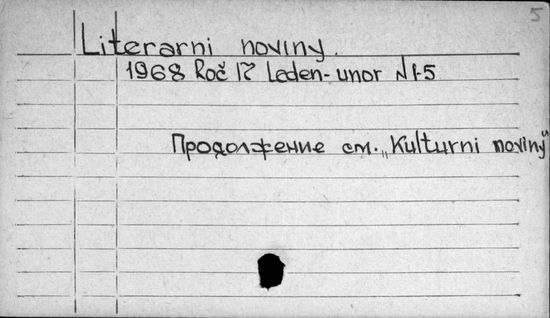 5
Literarni noviny.
1968 Roč 17 Leden-unor N 1-5
Продолжение см. „Kulturni noviny"